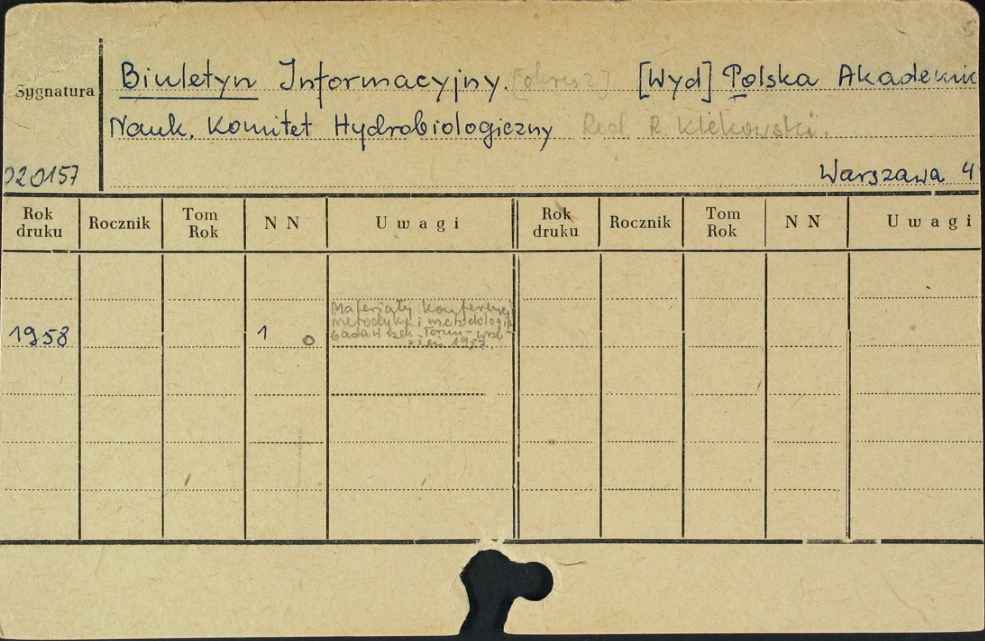 Sygnatura
Biuletyn Informacyjny. [Wyd] Polska Akademic
Nauk. Komitet Hydrobiologiczny Red. R. Klekowski.
020157
Warszawa 4
Rok druku Rocznik Tom Rok N N Uwagi Rok druku Rocznik Tom Rok N N Uwagi
Materiały Konferencji
metodyki i metodologii
1958 1 o
badań Toruń
1957